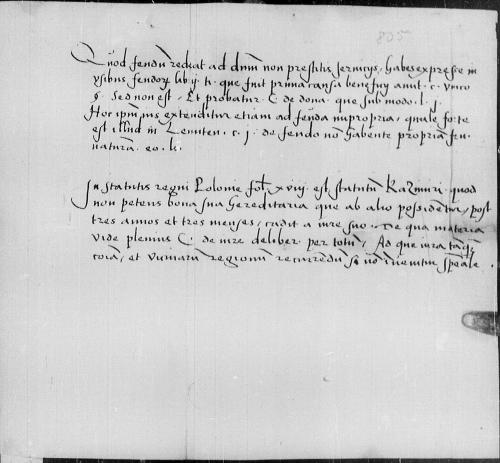 835
Quod feudu redeat ad dnm non prestitis seruicys, habes expresse in
vsibus feudor lib ij ti. que fuit prima causa benef amit. c. vnico
§. Sed non est, Et probatur C. de dona. que sub modo. l. j.
Hoc ipm ius extenditur etiam ad feuda impropria, quale forte
est illud in c. j. de feudo no habente propria feu.
natura. eo. li.
In statutis regni Polonie fol. xviij est statutu Kazimiri quod
non petens bona sua hereditaria que ab alio possidentur, post
tres annos et tres menses, cadit a iure suo. De qua materia
vide plenius C. de iure deliber. per totu, Ad que iura taq
et regionu recurredu si no inuenitur speale.